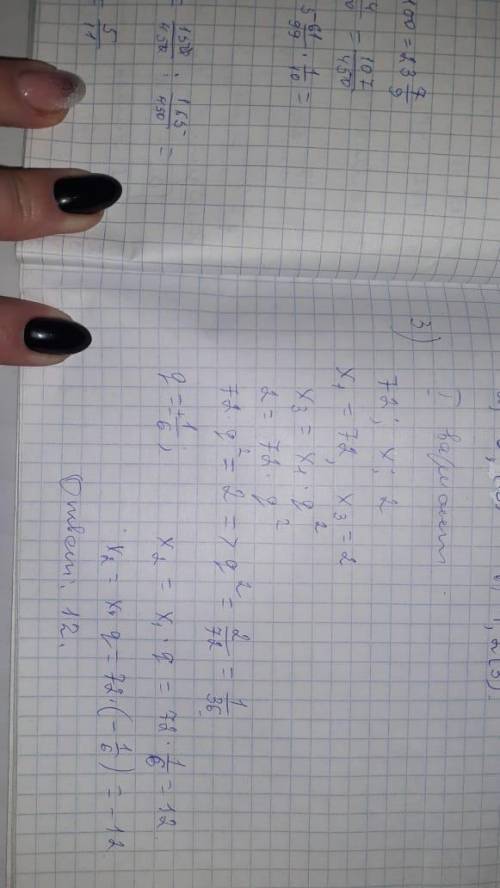 100 = 23 7/9
4/ = 107/450
5 61/99 · 1/10 =
/450 : 165/450 =
= 5/11
3) I вариант.
72; x; 2
x₁ = 72, x₃ = 2
x₃ = x₁ · q²
2 = 72 · q²
72 q² = 2 => q² = 2/72 = 1/36
q = ± 1/6; x₂ = x₁ · q = 72 · 1/6 = 12
x₂ = x₁ q = 72 · (- 1/6) = -12
Ответ: 12.